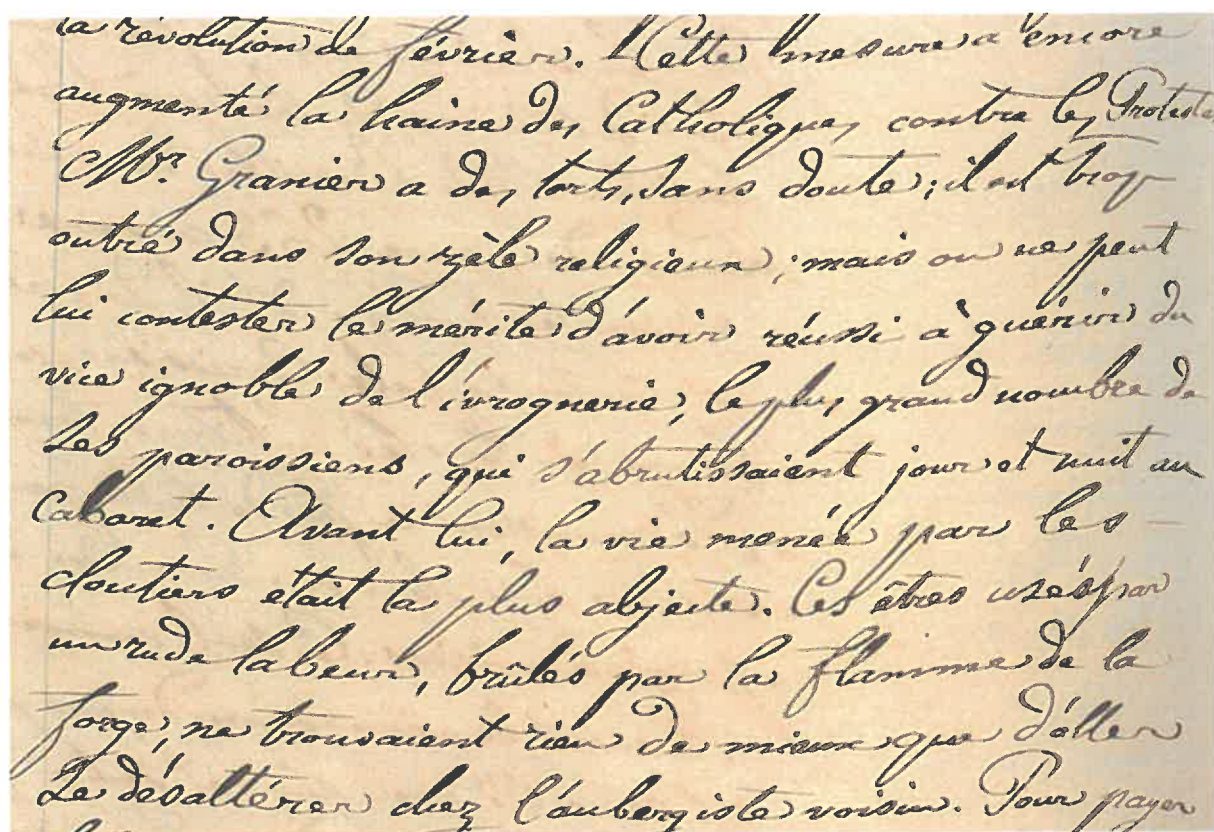 la révolution de février. Cette mesure a encore
augmenté la haine des Catholiques contre les Protest
Mr. Granier a des torts, sans doute ; il est trop
outré dans son zèle religieux ; mais on ne peut
lui contester le mérite d'avoir réussi à guérir du
vice ignoble de l'ivrognerie, le plus grand nombre de
ses paroissiens, qui s'abrutissaient jour et nuit au
Cabaret. Avant lui, la vie menée par les
cloutiers était la plus abjecte. Ces êtres usés par
un rude labeur, brûlés par la flamme de la
forge, ne trouvaient rien de mieux que d'aller
se désaltérer chez l'aubergiste voisin. Pour payer